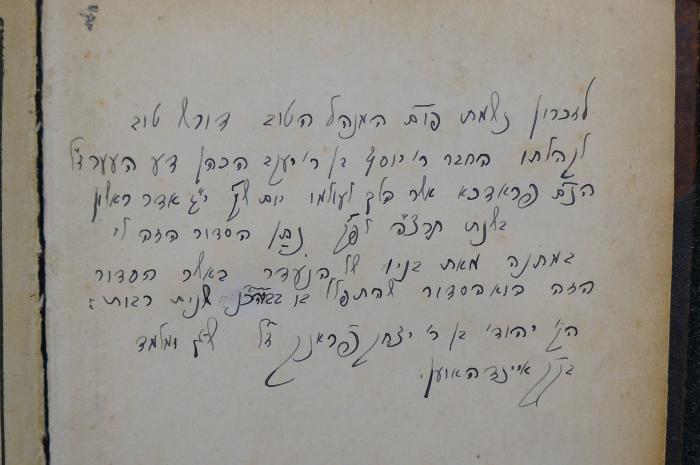 לזכרון נשמת פו"מ המנהל הטוב דורש טוב
לקהלתו החבר ר' יוסף בן ר' יעקב הכהן דע הער ז"ל
הנ"מ אשר הלך לעולמו יום ש"ק י"ג אדר ראשון
בשנת תרצ"ה לפ"ק נתן הסדור הזה לי
במתנה מאת בניו של הנעדר באשר הסדור
הזה הוא הסדור שהתפלל בו שנית רבות:
הק' יהודי בן ר' יצחק פראנק ז"ל ש"ץ ומלמד
בק"ק איינדהאווען.